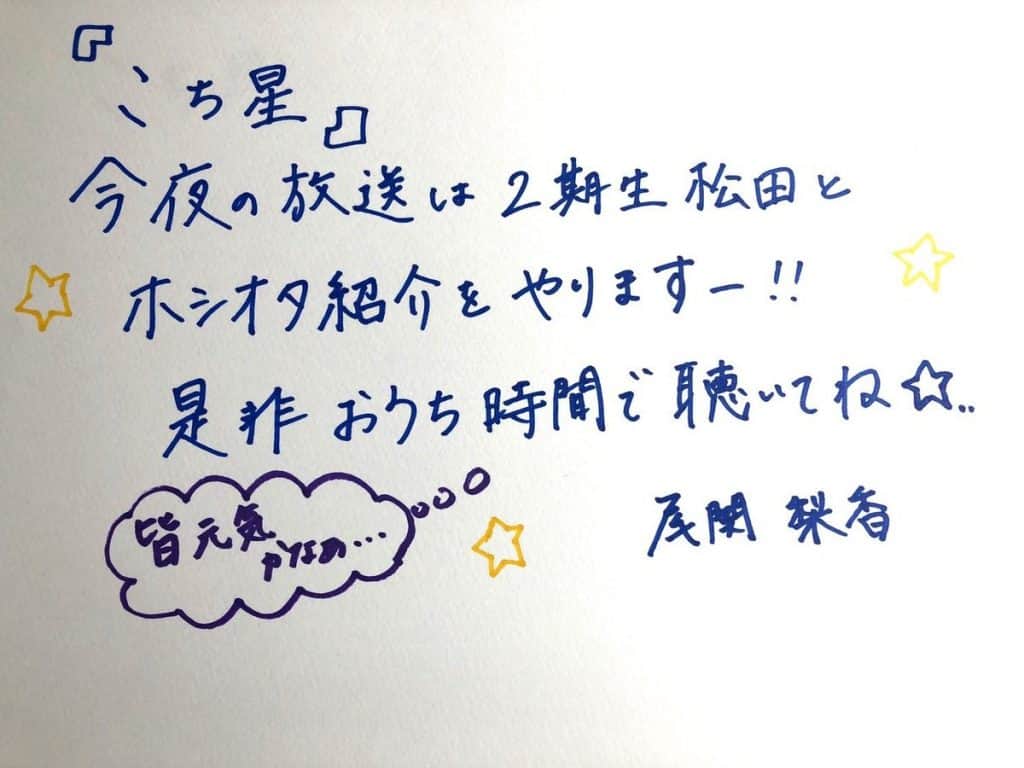 『こち星』
今夜の放送は2期生松田と
ホシオタ紹介をやりますー!!
是非おうち時間で聴いてね☆..
尾関梨香
皆元気
かなぁ...